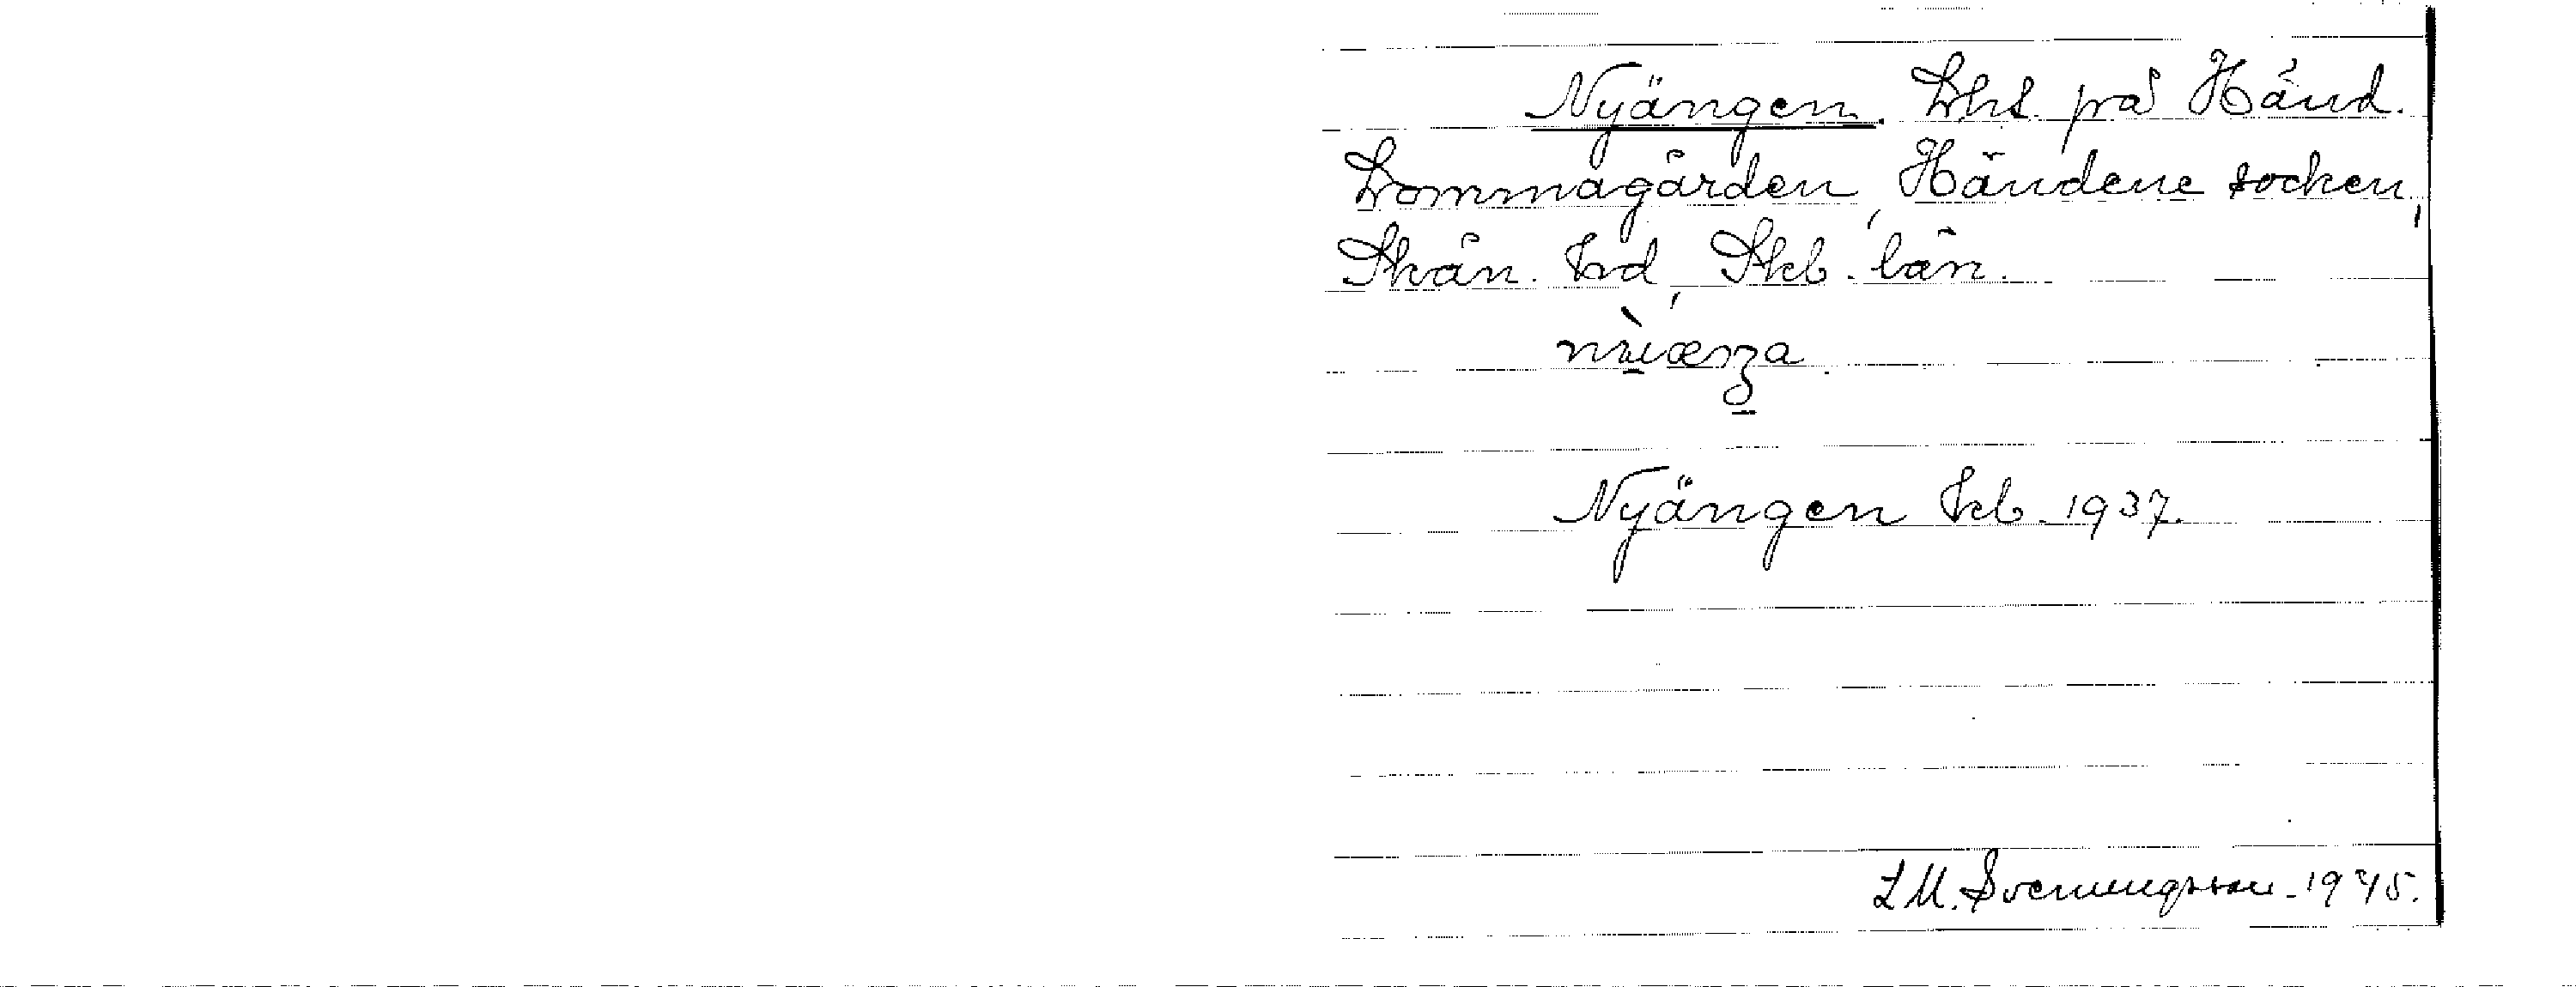 Nyängen. Lht på Händ.
Lommagården, Händene socken,
Skån. hd, Skb. län.
Nyängen 1937.
L M. Svenungsson - 1945.